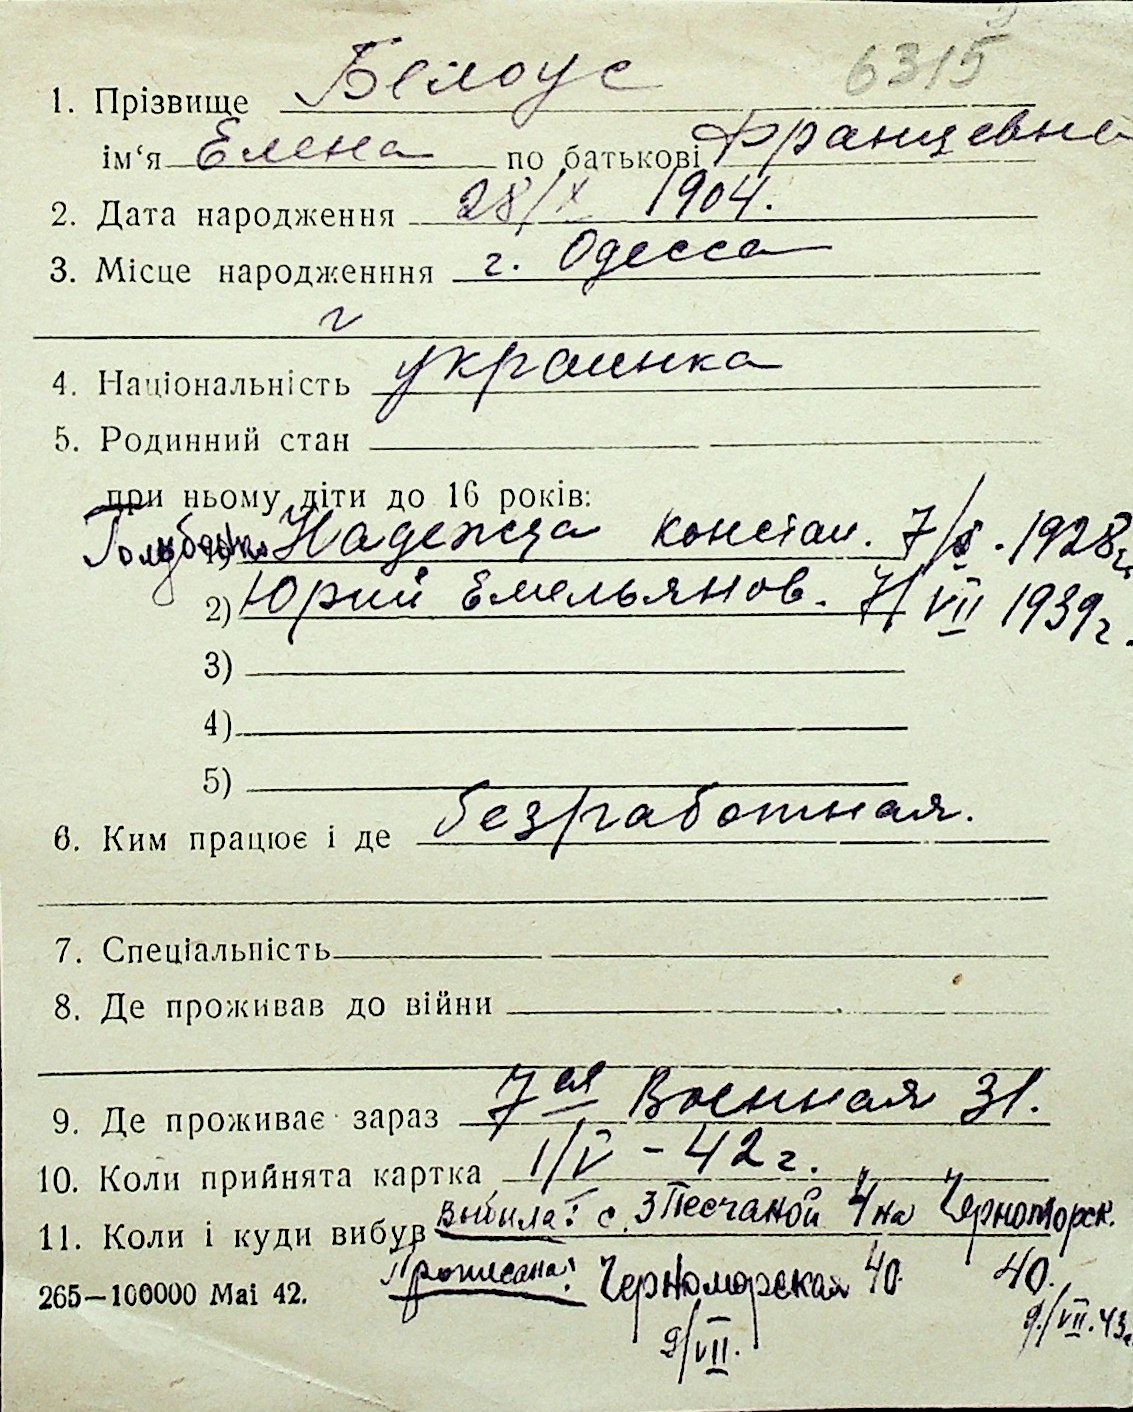 6315
1. Прізвище Белоус
ім‘я Елена по батькові Францевна
2. Дата народження 28/X 1904.
3. Місце народженння г. Одесса
г
4. Національність украинка
5. Родинний стан
при ньому діти до 16 років:
1) Надежда констан. 7/X. 1928г.
2) Юрий Емельянов. 7/VII 1939г.
3)
4)
5)
6. Ким працює і де безработная.
7. Спеціальність
8. Де проживав до війни
9. Де проживає зараз 7ая Военная 31.
10. Коли прийнята картка 1/V - 42г.
11. Коли і куди вибув выбыла: с 3 Песчаной 4 на Черноморск. 40.
прописана: Черноморская 40
265—100000 Mai 42.
9/VII.
9/VII.43г.